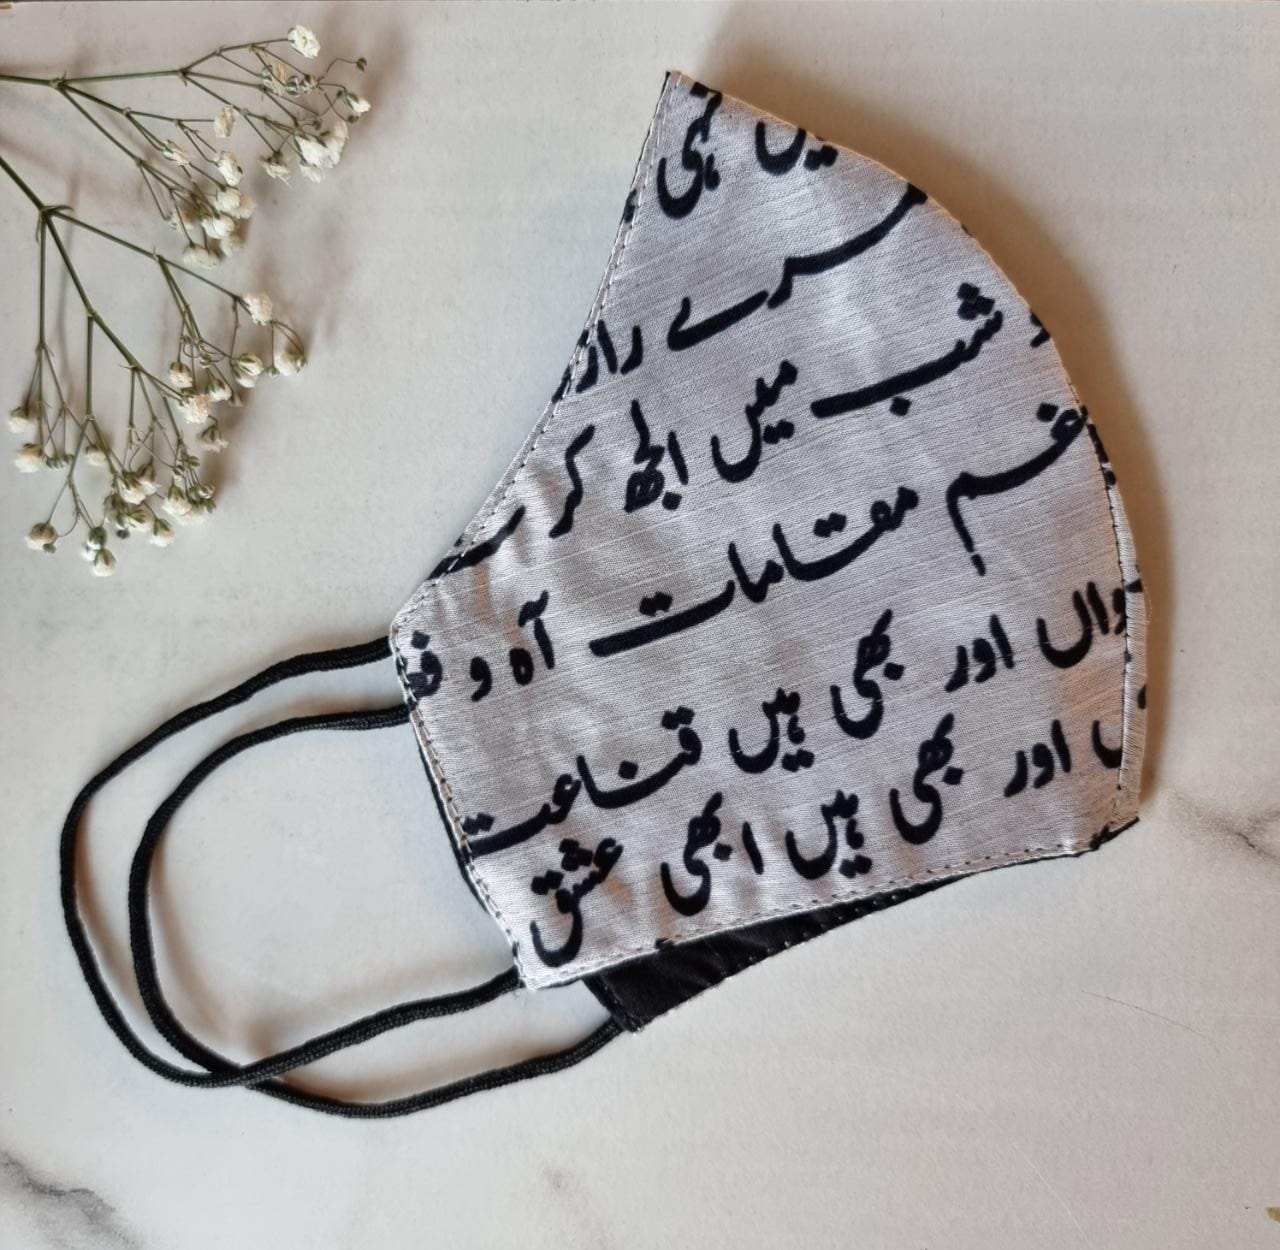 نہی یں
رے راز
و شب میں الجھ کر
غم مقامات آہ و
واں اور بھی ہیں قناعت
اور بھی ہیں ابھی عشق